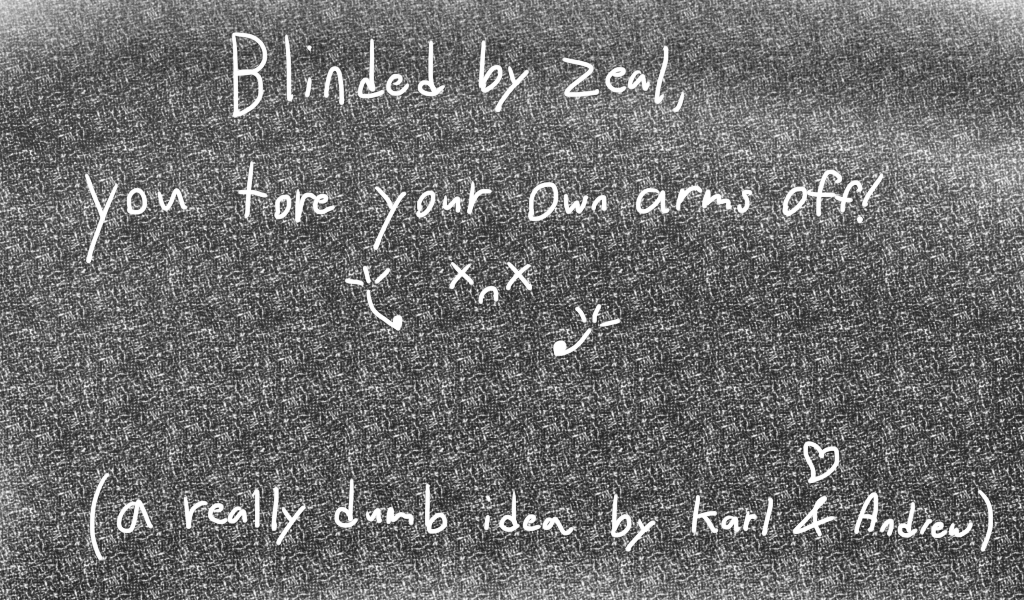 Blinded by zeal,
you tore your own arms off!
(a really dumb idea by karl & Andrew)